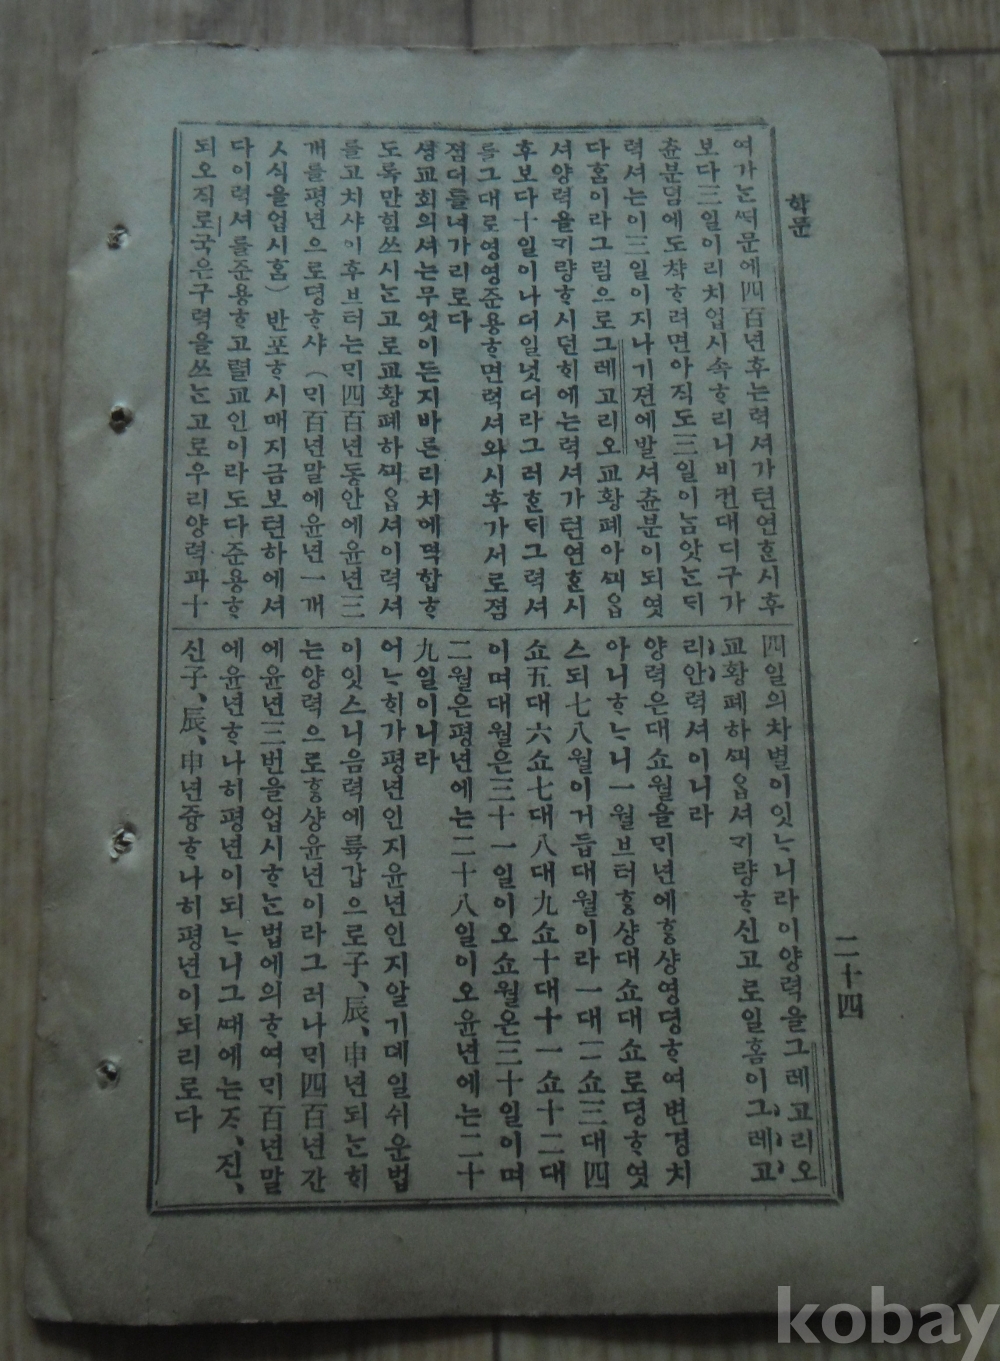 학문
여가ᄂᆞᆫᄯᅢ문에四百년후는력셔가텬연ᄒᆞᆫ시후
보다三일이리치업시속ᄒᆞ리니비컨대디구가
츈분뎜에도챡ᄒᆞ려면아직도三일이놈앗ᄂᆞᆫᄃᆡ
력셔는이三일이지나기젼에발셔츈분이되엿
다홈이라그럼으로그레고리오교황폐아ᄭᅴᄋᆞᆸ
셔양력을ᄀᆡ량ᄒᆞ시던ᄒᆡ에는력셔가텬연ᄒᆞᆫ시
후보다十일이나더일넛더라그러ᄒᆞᆫᄃᆡ그력셔
를그대로영영쥰용ᄒᆞ면력셔와시후가서로졈
졈더틀녀가리로다
셩교회의셔는무엇이든지바른리치에덕합ᄒᆞ
도록만힘쓰시ᄂᆞᆫ고로교황폐하ᄭᅴᄋᆞᆸ셔이력셔
를고치샤이후브터는ᄆᆡ四百년동안에윤년三
개를평년으로뎡ᄒᆞ샤（ᄆᆡ百년말에윤년一개
ㅅ식을업시홈）반포ᄒᆞ시매지금보텬하에셔
다이력셔를쥰용ᄒᆞ고렬교인이라도다쥰용ᄒᆞ
되오직로국은구력을쓰ᄂᆞᆫ고로우리양력과十
四일의차별이잇ᄂᆞ니라이양력을그레고리오
교황폐하ᄭᅴᄋᆞᆸ셔ᄀᆡ량ᄒᆞ신고로일홈이그레고
리안력셔이니라
양력은대쇼월을ᄆᆡ년에ᄒᆞᆼ샹영뎡ᄒᆞ여변경치
아니ᄒᆞᄂᆞ니一월브터ᄒᆞᆼ샹대쇼대쇼로뎡ᄒᆞ엿
스되七八월이거듭대월이라一대二쇼三대四
쇼五대六쇼七대八대九쇼十대十一쇼十二대
이며대월은三十一일이오쇼월은三十일이며
二월은평년에는二十八일이오윤년에는二十
九일이니라
어ᄂᆞᄒᆡ가평년인지윤년인지알기에일쉬운법
이잇스니음력에륙갑으로子、辰、申년되ᄂᆞᆫᄒᆡ
는양력으로ᄒᆞᆼ샹윤년이라그러나ᄆᆡ四百년간
에윤년三번을업시ᄒᆞᄂᆞᆫ법에의ᄒᆞ여ᄆᆡ百년말
에윤년ᄒᆞ나히평년이되ᄂᆞ니그ᄯᅢ에는ᄌᆞ、진、
신子、辰、申년즁ᄒᆞ나히평년이되리로다
二十四
kobay